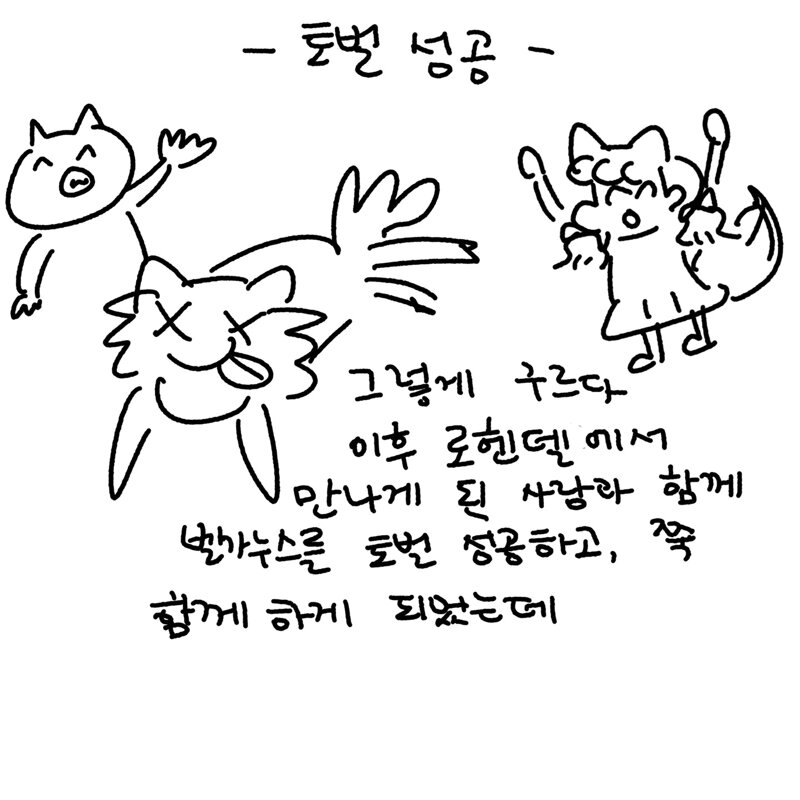 - 토벌 성공 -
그렇게 구르다
이후 로헨델에서
만나게 된 사람과 함께
벨가누스를 토벌 성공하고, 쭉
함께 하게 되었는데